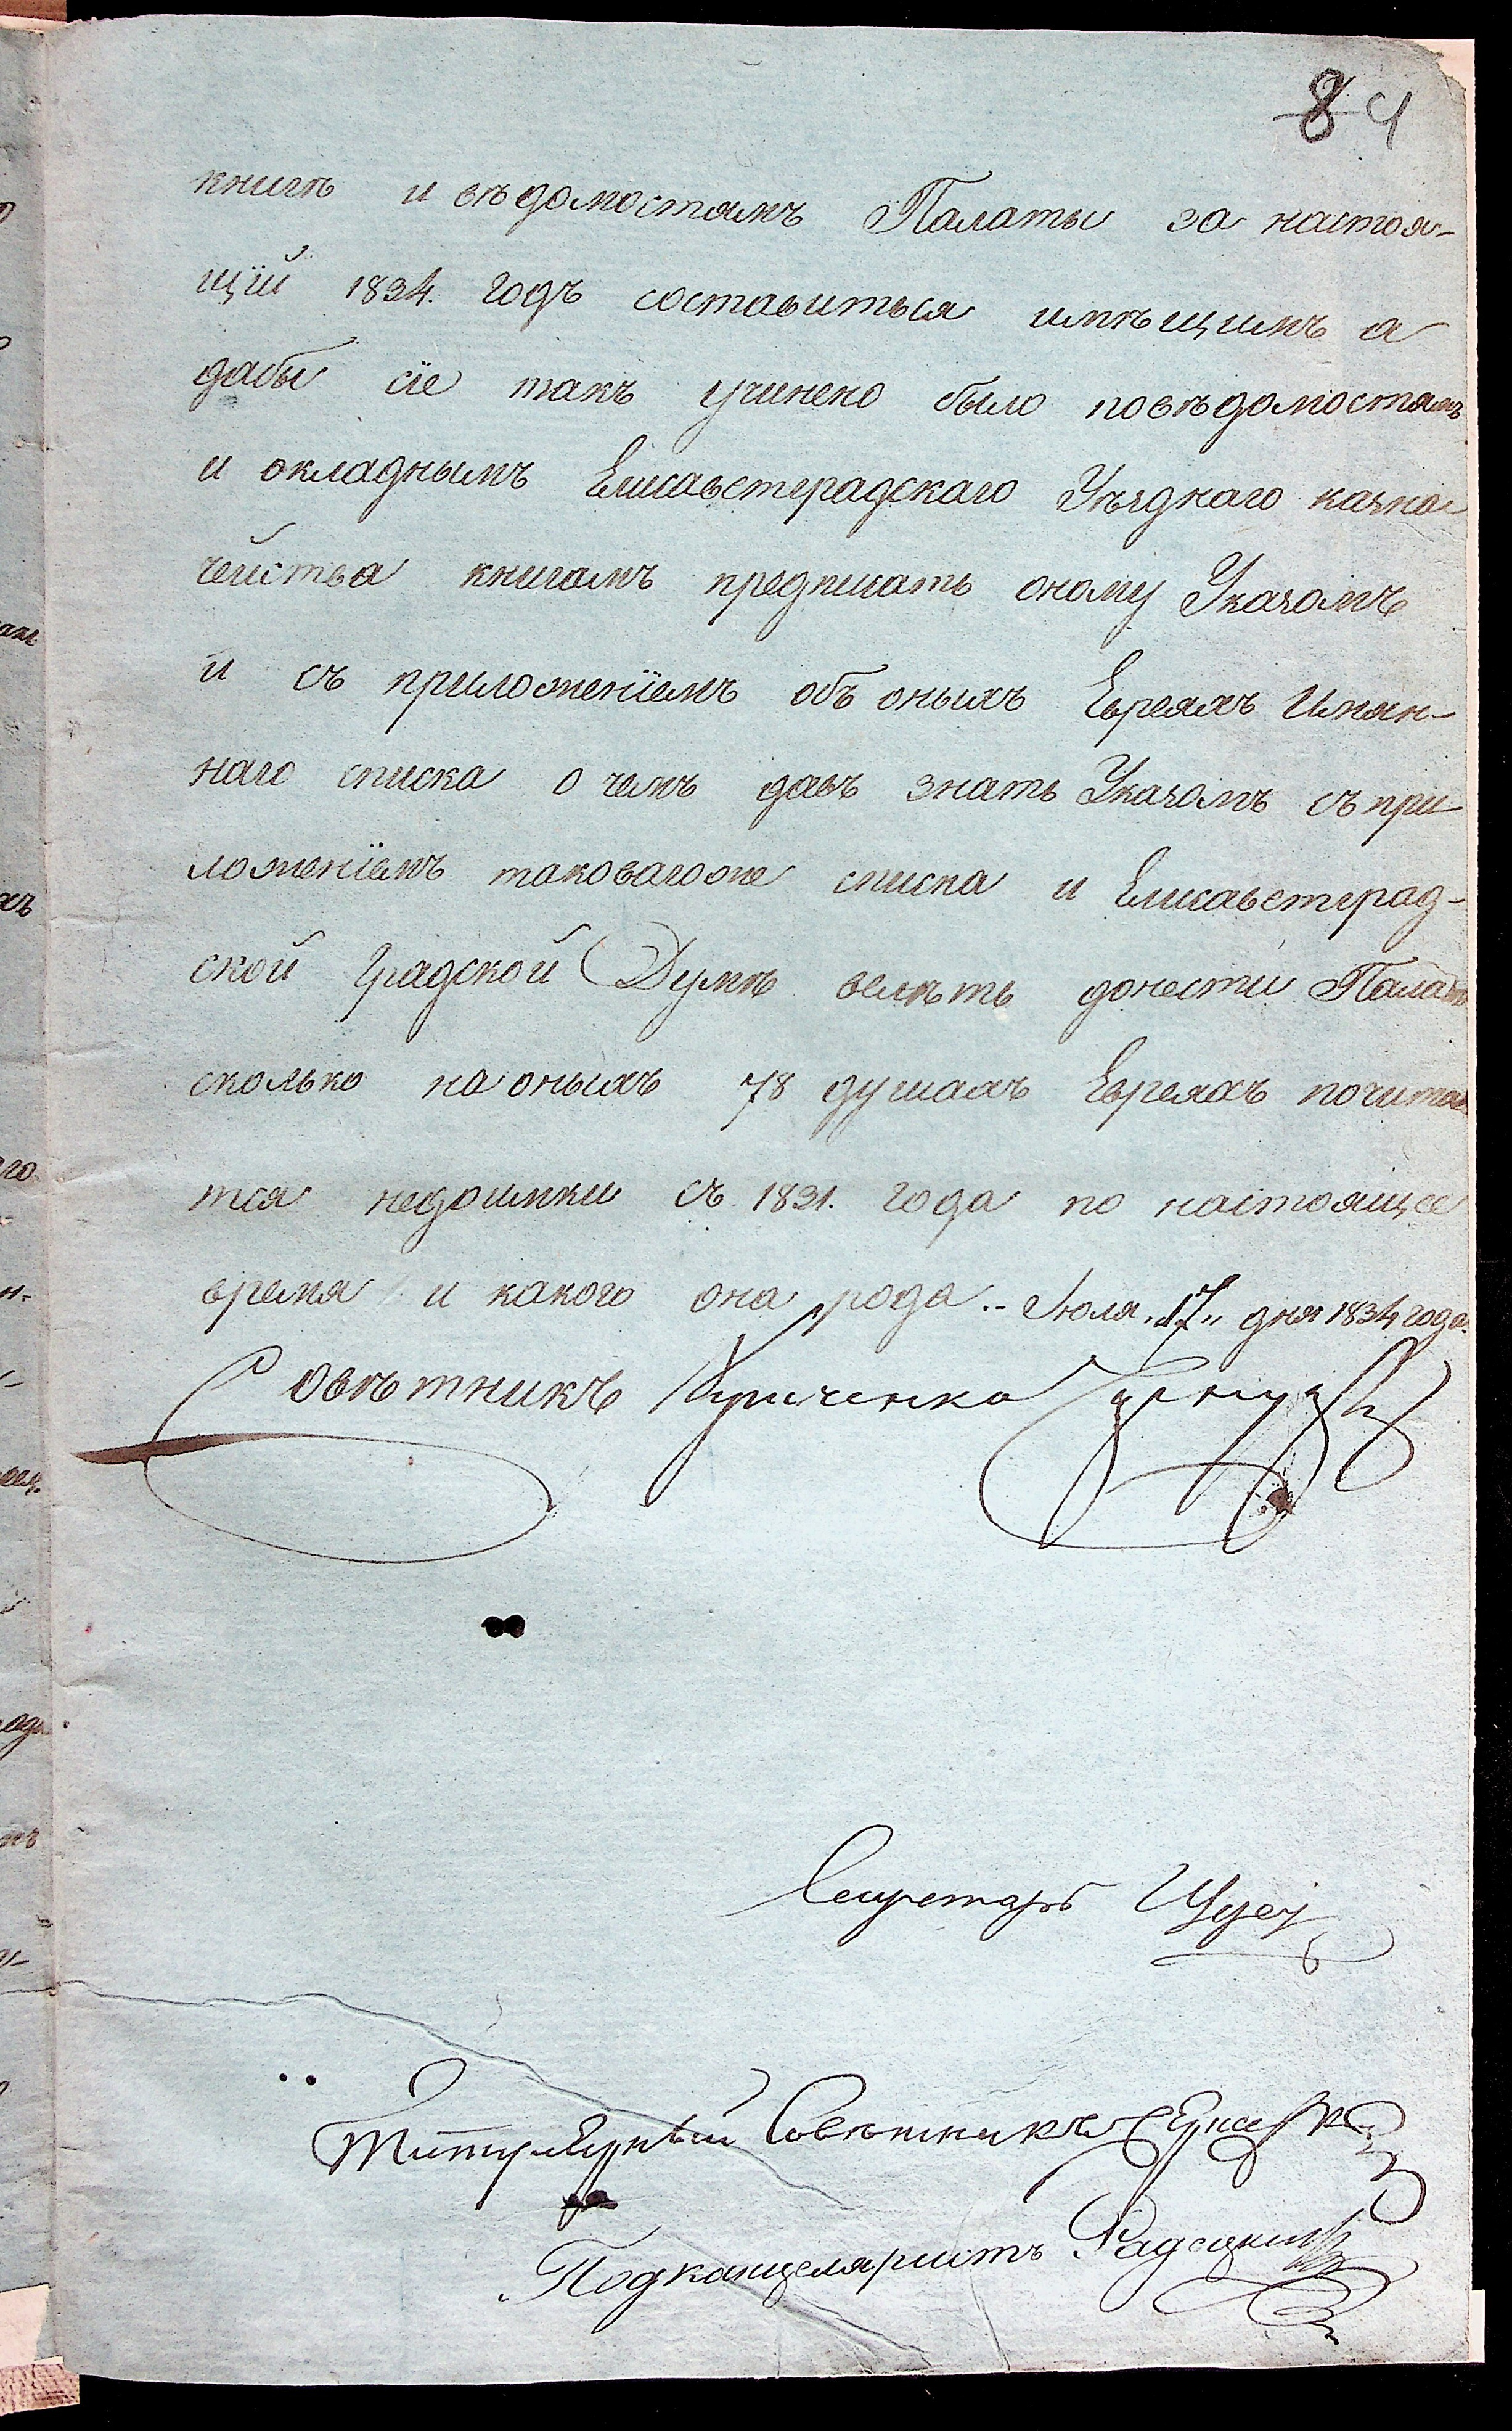 84
книгѣ и вѣдомостямъ Палаты за настоя-
щїй 1834. годъ составиться имѣющимъ а
дабы сїе такъ учинено было повѣдомостямъ
и окладнымъ Елисаветградскаго Уѣзднаго казна
чейства книгамъ предписать оному Указомъ
и съ приложенїемъ объ оныхъ Евреяхъ Имян-
наго списка о чемъ давъ знать Указомъ съ при
ложенїемъ таковагоже списка и Елисаветград-
ской Градской Думѣ велѣть донести Палатѣ
сколько на оныхъ 78 душахъ Евреяхъ почитае
тся недоимки съ 1831. года по настоящее
время и какого она рода.. Июля „17„ дня 1834 года.
Совѣтникъ
Секретарь
Титулярный Совѣтникъ
Подканцеляристъ Радецкий